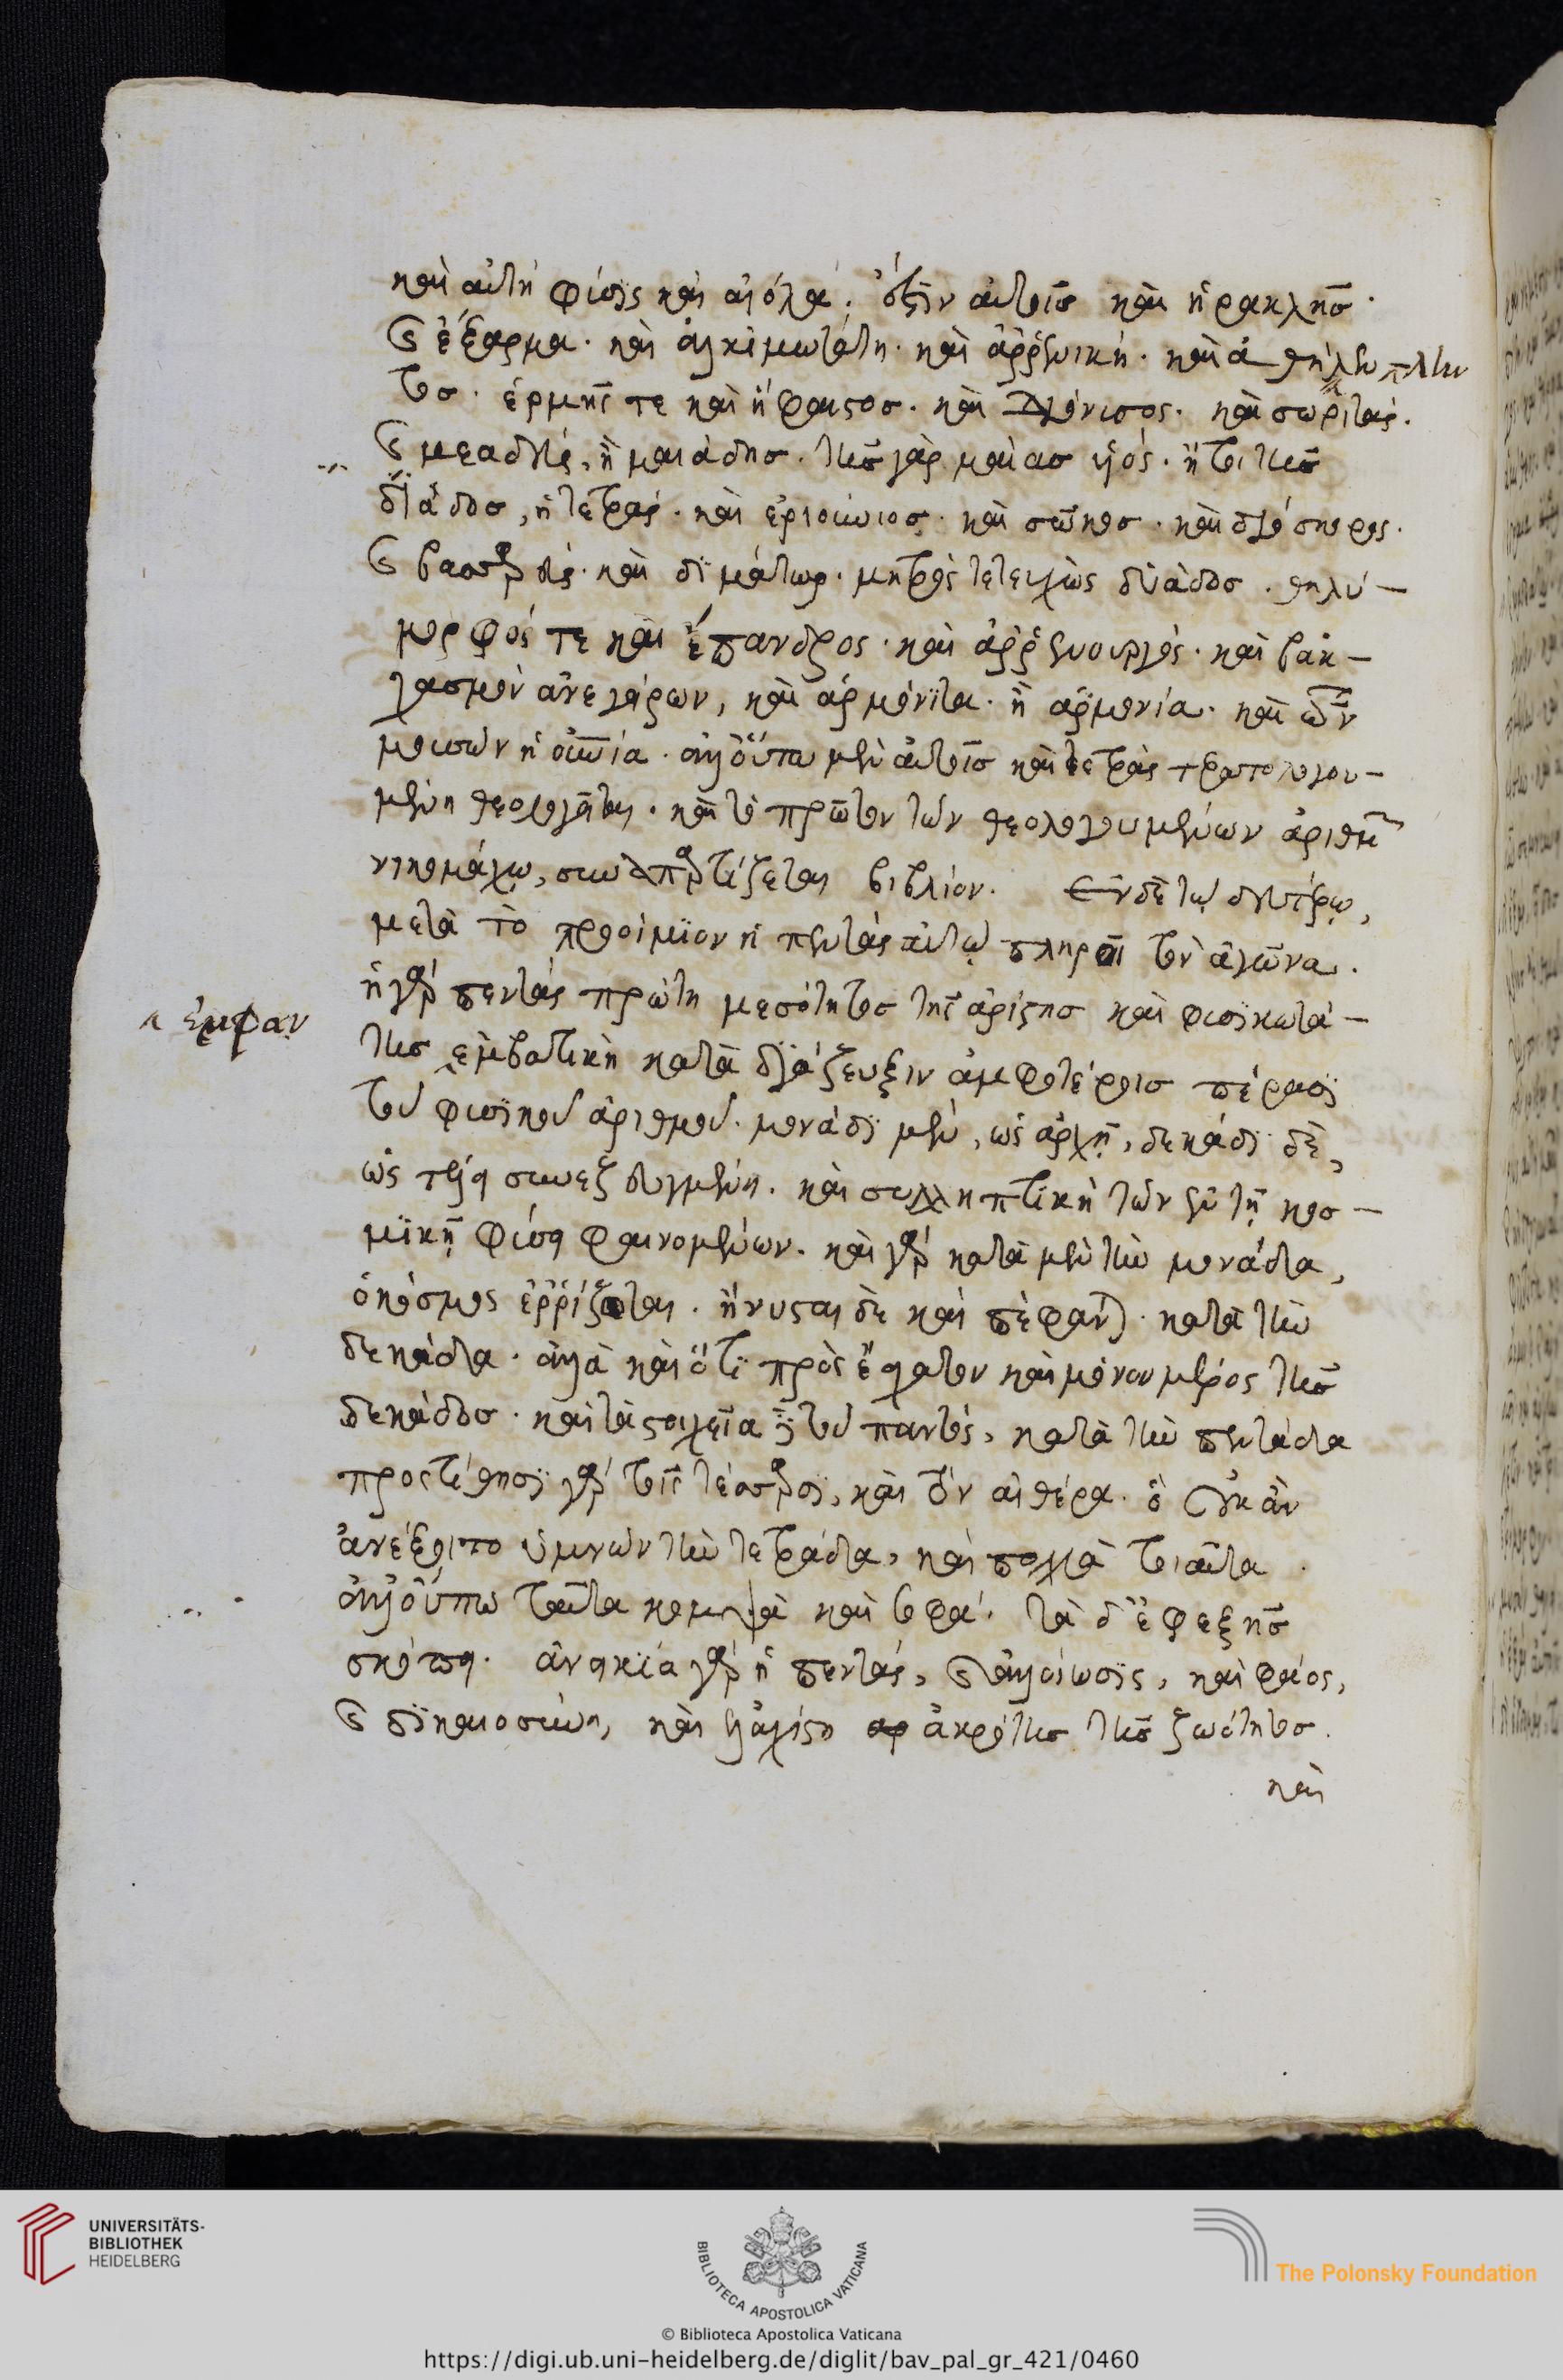 καὶ αὐτὴ φύσις καὶ αἰόλα. ἔστιν αὐτοῖς καὶ ἡρακλῆς.
καὶ ἔξαρμα. καὶ ἀλκιμωτάτη. καὶ ἀρρενικὴ. καὶ ἀθήλυν
τος. ἑρμῆς τε καὶ ἥφαιστος. καὶ διόνυσος. καὶ σωρίτας.
καὶ μεαδεύς, ἢ μαιάδης. τῆς γὰρ μαίας υἱός. ἤτοι τῆς
δυάδος, ἡ τετράς. καὶ ἐριούνιος. καὶ σῶκος. καὶ διόσκορος.
καὶ βασσαρεύς. καὶ διμάτωρ. μητρὸς τετευχὼς δυάδος. θηλύ-
μορφός τε καὶ ἔπανδρος. καὶ ἀρρενουργός. καὶ βακ-
χασμὸν ἀνεγείρων, καὶ ἁρμονίτα. ἢ ἁρμονία. καὶ τῶν
μουσῶν ἡ οὐρανία. ἀλλ' οὕτω μὲν αὐτοῖς καὶ τετρὰς τερατολογου-
μένη θεολογεῖται. καὶ τὸ πρῶτον τῶν θεολογουμένων ἀριθμῶν
νικομάχῳ, συναπαρτίζεται βιβλίον. Ἐν δὲ τῷ δευτέρῳ,
μετὰ τὸ προοίμιον ἡ πεντὰς αὐτῷ πληροῖ τὸν ἀγῶνα.
ἡ γὰρ πεντὰς πρώτη μεσότητος τῆς ἀρίστης καὶ φυσικωτά-
ἐμφαν
της ἐμβατικὴ κατὰ διάζευξιν ἀμφοτέροις πέρασι
τοῦ φυσικοῦ ἀριθμοῦ. μονάδι μὲν, ὡς ἀρχῇ, δεκάδι δὲ,
ὡς τέλει συνεζευγμένη. καὶ συλληπτικὴ τῶν ἐν τῇ κοσ-
μικῇ φύσει φαινομένων. καὶ γὰρ κατὰ μὲν τὴν μονάδα,
ὁ κόσμος ἐρρίζωται. ἤνυσται δὲ καὶ πέφανται. κατὰ τὴν
δεκάδα. ἀλλὰ καὶ ὅτι πρὸς ἔσχατον καὶ μόνον μέρος τῆς
δεκάδος. καὶ τὰ στοιχεῖα τοῦ παντός, κατὰ τὴν πεντάδα
προστίθησι γὰρ τοῖς τέσσαρσι, καὶ τὸν αἰθέρα. ὃ οὐκ ἂν
ἀνέξοιτο ὑμνῶν τὴν τετράδα, καὶ πολλὰ τοιαῦτα.
ἀλλ' οὔπω ταῦτα κομψὰ καὶ σοφά. τὰ δ' ἐφεξῆς
σκόπει. ἀνεικία γὰρ ἡ πεντάς, καὶ ἀλλοίωσις, καὶ φάος,
καὶ δικαιοσύνη, καὶ ἐλαχίστη ἀκρότης τῆς ζωότητος.
καὶ
UNIVERSITÄTS-
BIBLIOTHEK
HEIDELBERG
BIBLIOTECA APOSTOLICA VATICANA
The Polonsky Foundation
© Biblioteca Apostolica Vaticana
https://digi.ub.uni-heidelberg.de/diglit/bav_pal_gr_421/0460